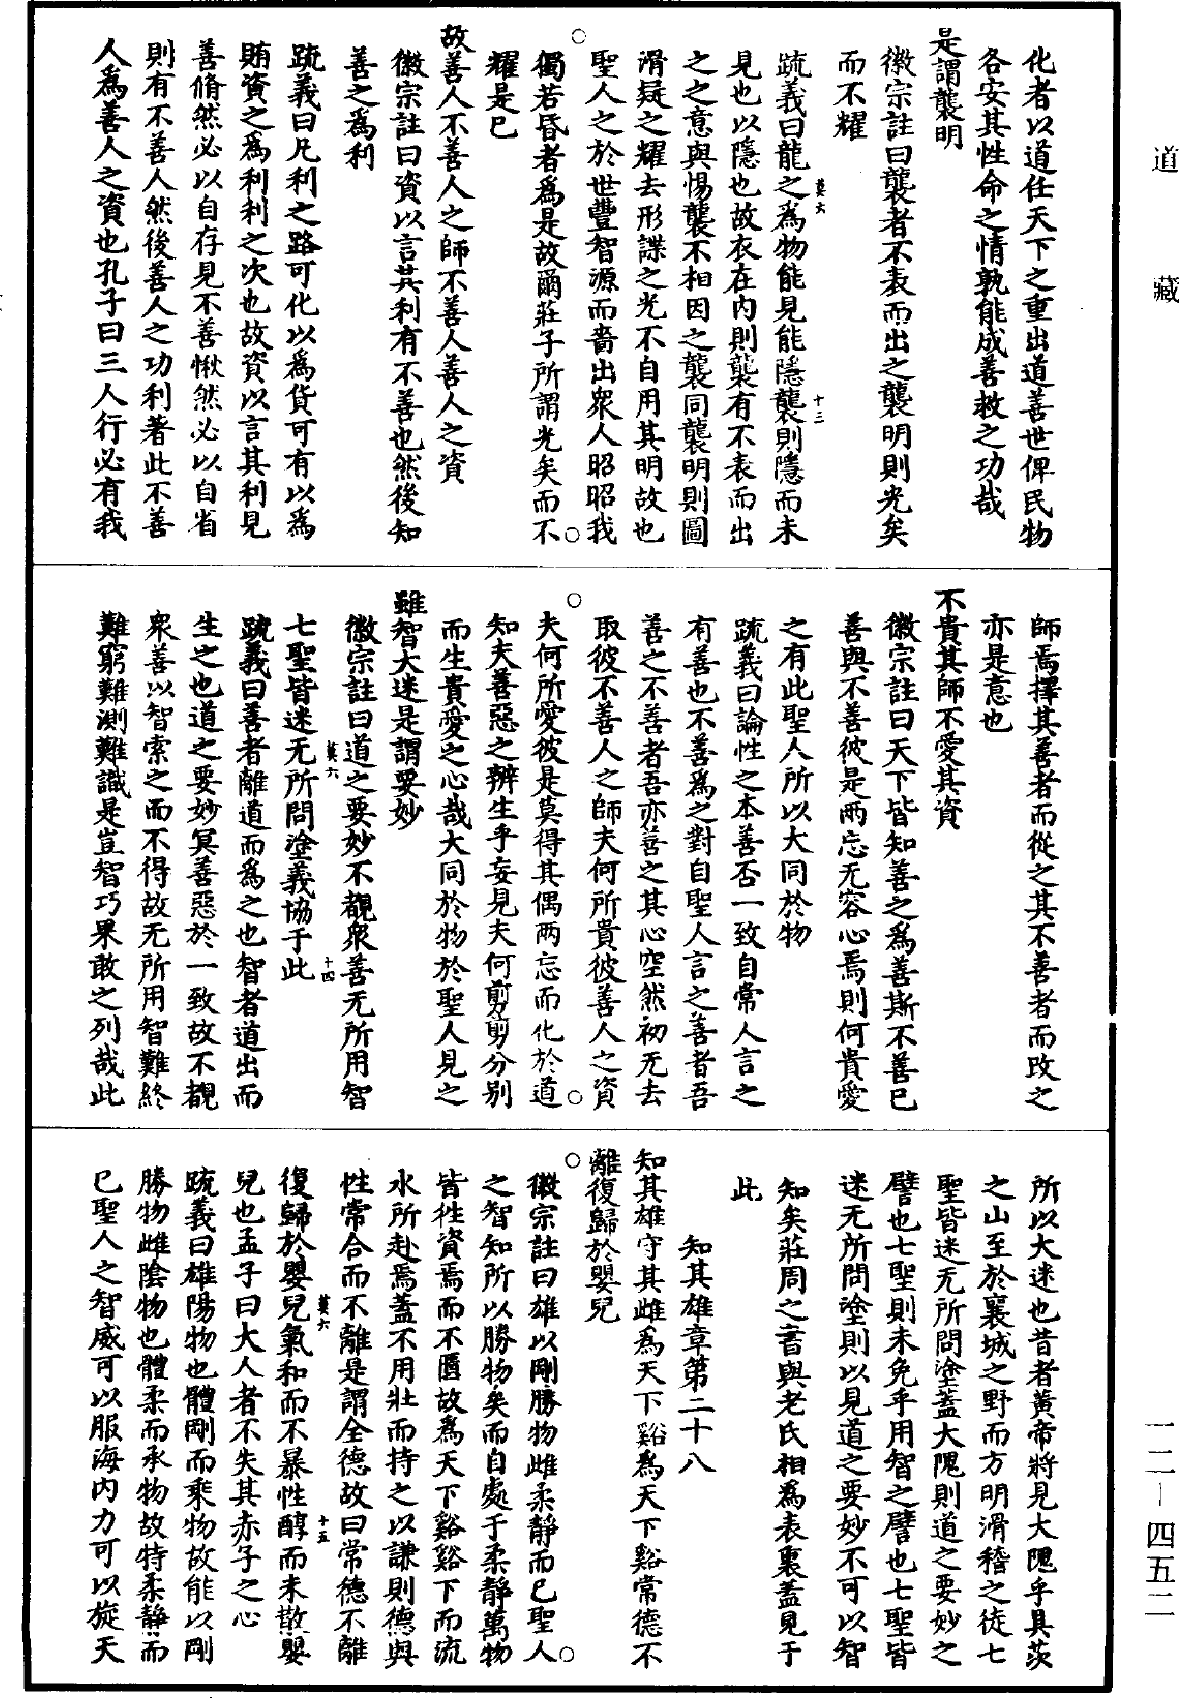 道藏
化者以道任天下之重出道善世俾民物
各安其性命之情孰能成善救之功哉
是謂襲明
徽宗註曰襲者不表而出之襲明則光矣
而不耀
疏義曰龍之爲物能見能隱襲則隱而未
莫六
十三
見也以隱也故衣在內則襲有不表而出
之之意與惕襲不相因之襲同襲明則圖
滑疑之耀去形諜之光不自用其明故也
聖人之於世豐智源而嗇出衆人昭昭我
獨若昏者爲是故爾莊子所謂光矣而不
耀是已
故善人不善人之師不善人善人之資
徽宗註曰資以言其利有不善也然後知
善之爲利
疏義曰凡利之路可化以爲貨可有以爲
賄資之爲利利之次也故資以言其利見
善脩然必以自存見不善愀然必以自省
則有不善人然後善人之功利著此不善
人爲善人之資也孔子曰三人行必有我
師焉擇其善者而從之其不善者而改之
亦是意也
不貴其師不愛其資
徽宗註曰天下皆知善之爲善斯不善已
善與不善彼是兩忘无容心焉則何貴愛
之有此聖人所以大同於物
疏義曰論性之本善否一致自常人言之
有善也不善爲之對自聖人言之善者吾
善之不善者吾亦善之其心空然初无去
取彼不善人之師夫何所貴彼善人之資
夫何所愛彼是莫得其偶兩忘而化於道
知夫善惡之辨生乎妄見夫何剪剪分別
而生貴愛之心哉大同於物於聖人見之
雖智大迷是謂要妙
徽宗註曰道之要妙不覩衆善无所用智
七聖皆迷无所問塗義協于此
莫六
十四
疏義曰善者離道而爲之也智者道出而
生之也道之要妙冥善惡於一致故不覩
衆善以智索之而不得故无所用智難終
難窮難測難識是豈智巧果敢之列哉此
所以大迷也昔者黃帝將見大隗乎具茨
之山至於襄城之野而方明滑稽之徒七
聖皆迷无所問塗蓋大隗則道之要妙之
譬也七聖則未免乎用智之譬也七聖皆
迷无所問塗則以見道之要妙不可以智
知矣莊周之書與老氏相爲表裏蓋見于
此
知其雄章第二十八
知其雄守其雌爲天下谿爲天下谿常德不
離復歸於嬰兒
徽宗註曰雄以剛勝物雌柔靜而已聖人
之智知所以勝物矣而自處于柔靜萬物
皆往資焉而不匱故爲天下谿谿下而流
水所赴焉蓋不用壯而持之以謙則德與
性常合而不離是謂全德故曰常德不離
復歸於嬰兒氣和而不暴性醇而未散嬰
莫六
十五
兒也孟子曰大人者不失其赤子之心
疏義曰雄陽物也體剛而乘物故能以剛
勝物雌陰物也體柔而承物故特柔靜而
已聖人之智威可以服海內力可以旋天
一二—四五二